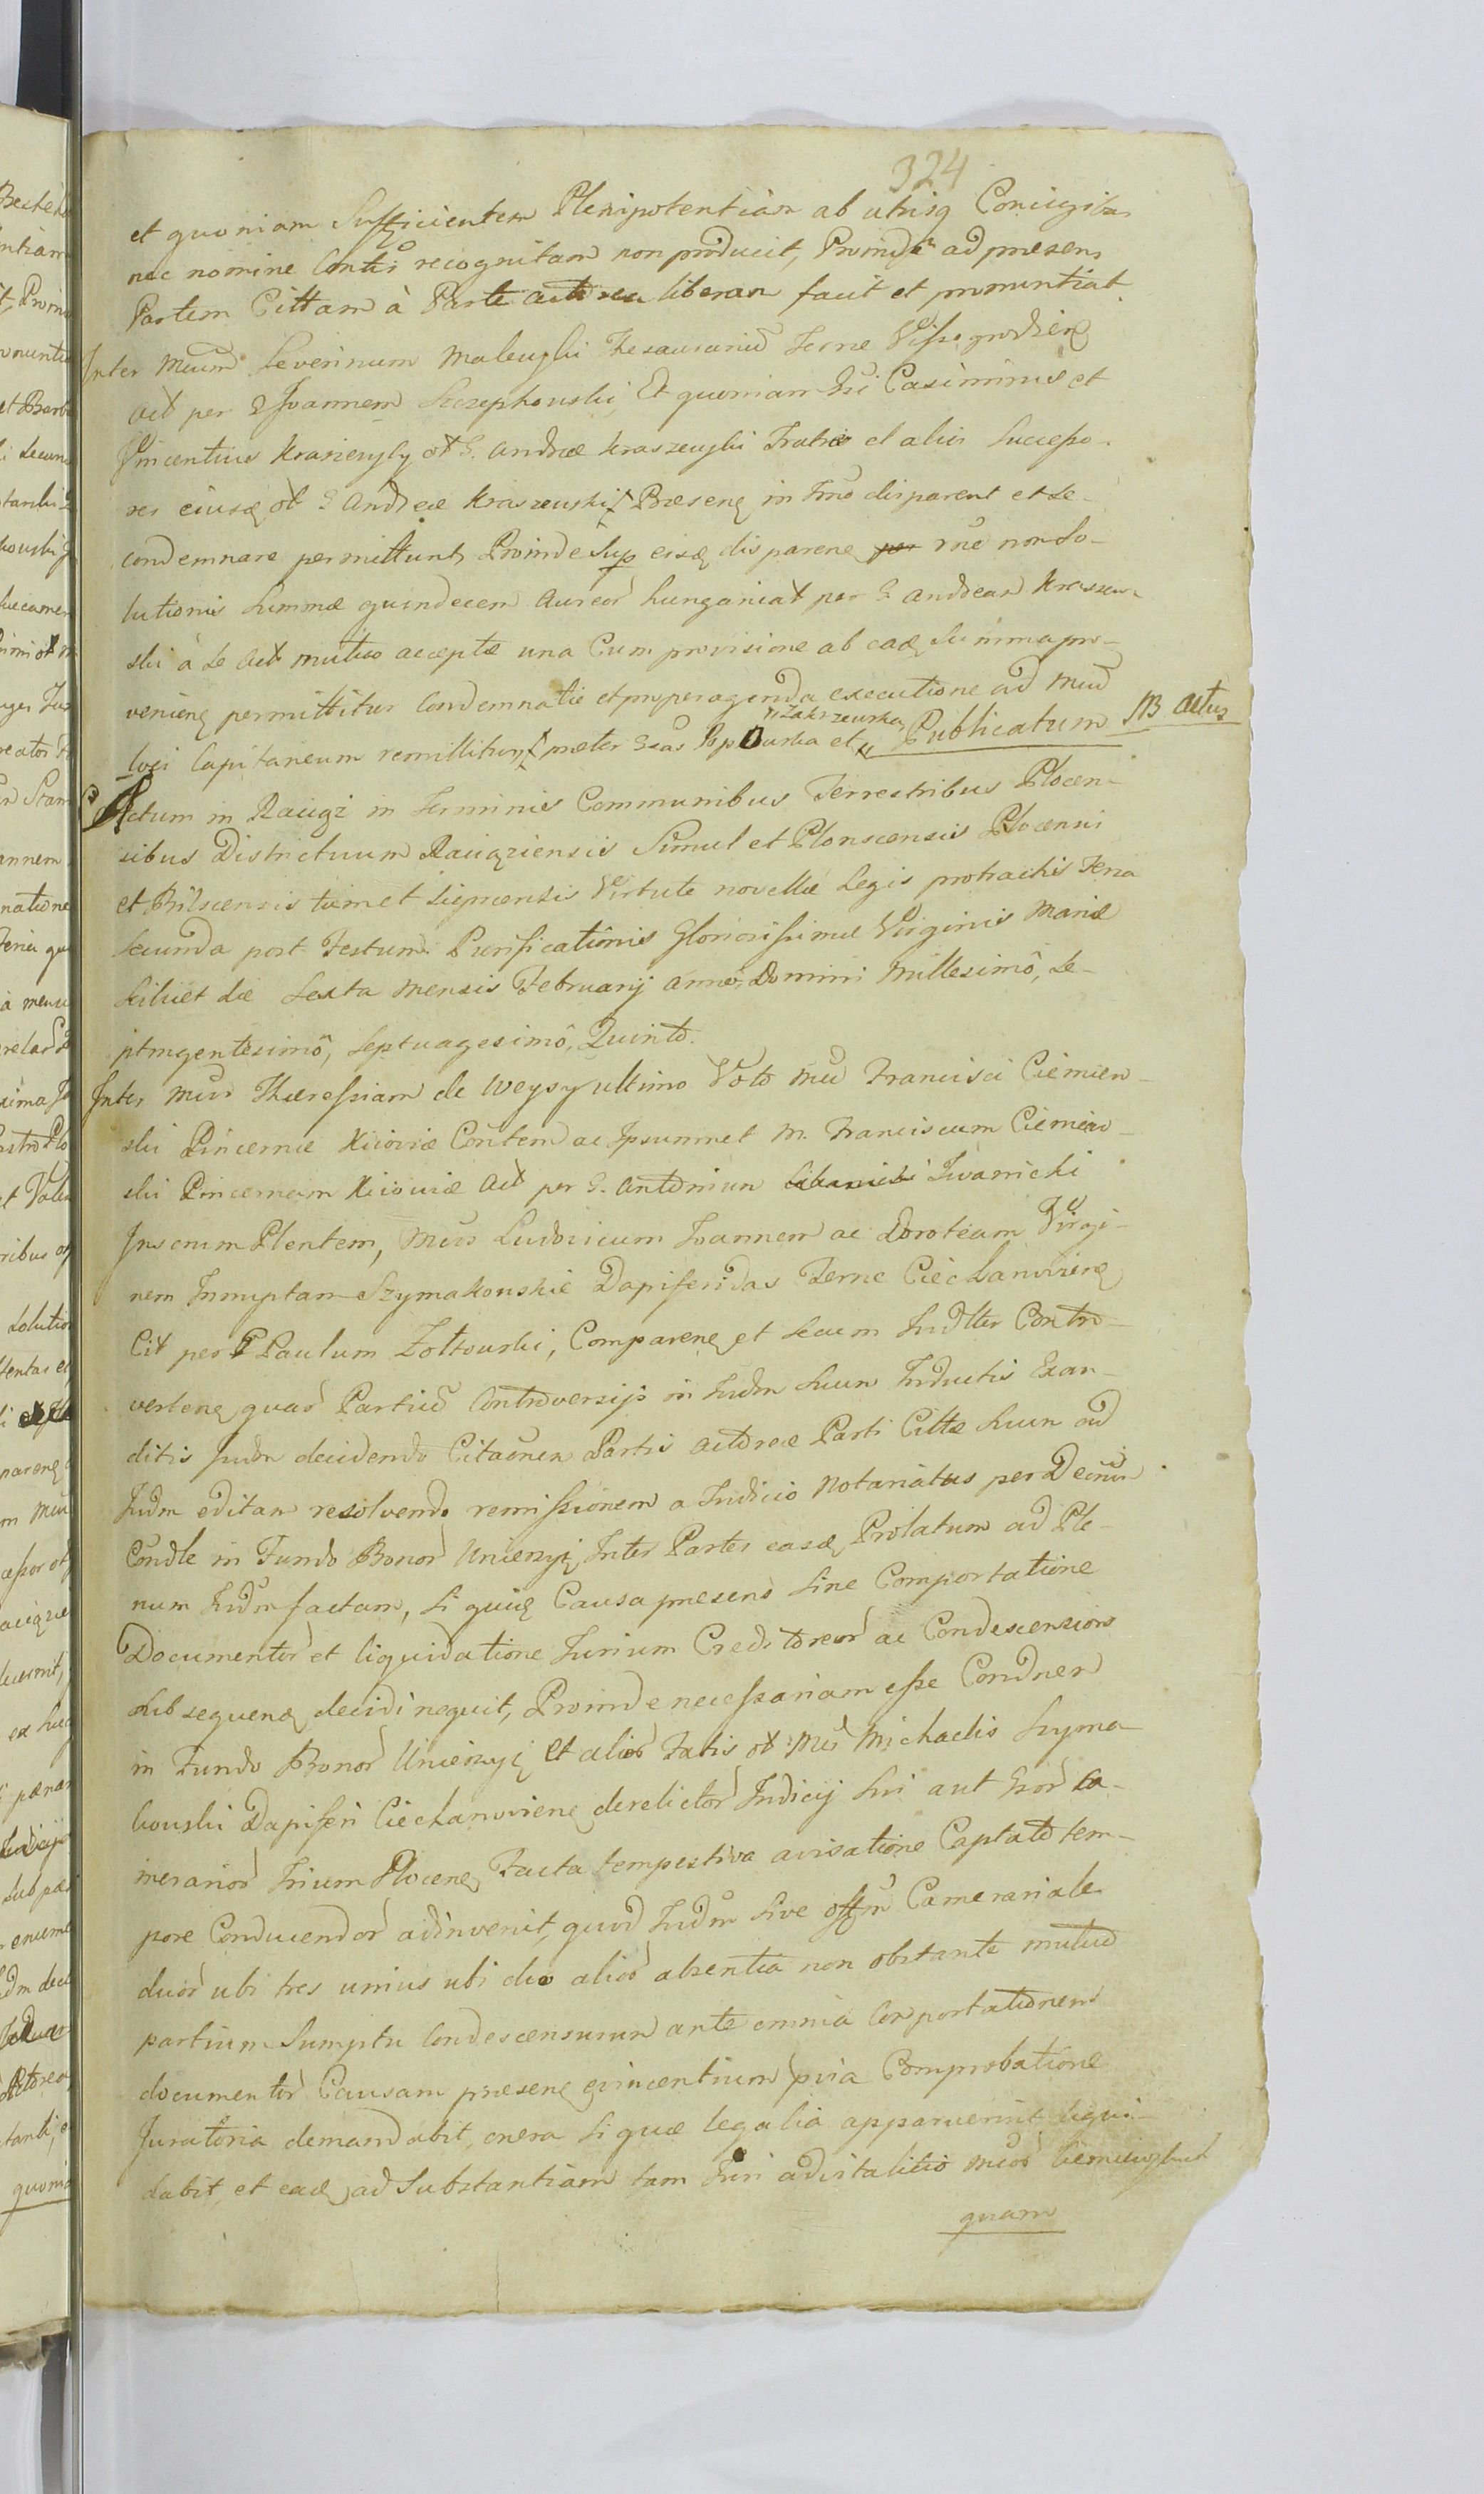 324
et quoniam Sufficientem Plenipotentiam ab utrisq Coniugibus
nec nomine recognitam non producit, Proinde ad praesens
Partem Cittam à Parte actorea liberam facit et pronuntiat
Inter Mcum Severinum Malewski Thesaurariu Terrae Vissegrodien
act per G Joannem Szczepkowski, Et quoniam Gsi Casimirus et
Vincentius Kraszewscy ol G. Andreae Kraszewski Fratris et alii Successo-
res eiusd ol G Andreae Kraszewski Praesen in Tmo disparent et se
condemnare permittunt, Proinde Sup eisd disparen rne non So-
lutionis Summae quindecem Aureor Hungarical per G Andream Kraszew-
ski à Se Act mutuo acceptae una Cum provisione ab ead Summa pro-
venien permittitur Condemnatie et pro peragenda executione ad Mcud
loci Capitaneum remittitur praeter Gsas et Zakrzewska Publicatum NB. Actus
Actum in Raciąż in Terminis Communibus Terrestribus Plocen-
sibus Districtuum Raciąziensis Simul et Plonscensis Plocensi
et Bilscensis tum et Siepcensis Virtute novellae Legis protractis Feria
Secunda post Festum Purificationis Gloriosissimae Virginis Mariae
Scilicet die Sexta Mensis Februarij Anno Domini Millesimô, Se-
ptingentesimô, Septuagesimô, Quinto.
Inter Mcos Theressiam de Weysy ultimo Voto Mci Francisci Ciemiew-
ski Pincernae Kijoviae Contem ac Ipsummet M. Franciscum Ciemiew-
ski Pincernam Kijoviae Act per G. Antonium Iwanicki
Insenim Plentem, Mcos Ludovicum Joannem ac Doroteam Virgi-
nem Innuptam Szymakowskie Dapiferidas Terrae Ciechanovien
Cit per G Paulum Zoltowski, Comparen et Secum Judlter Contro-
verten quar Partiu Controversijs in Judm Suum Inductis Exau-
ditis Judm decidendo Citaonem Partis Actoreae Parti Cittae Suum ad
Judm editam resolvendo remissionem a Judicio Notariatus per Decum
Condle in Fundo Bonor Unierzyz Inter Partes easd Prolatum ad Ple-
num Judm factam, Si quid Causa praesens Sine Comportatione
Documentor et liquidatione Iurium Creditoreor ac Condescensions
Subsequen decidi nequit, Proinde necessariam esse Condnem
in Fundo Bonor Unierzyz et alior Fatis ol Mci Michaelis Szyma-
kowski Dapiferi Ciechanovien derelictor Judicij Sui aut Gsor Ca-
merarior Trium Plocen, Facta tempestiva avisatione Captato tem-
pore Conducendor adinvenit, quod Judm Sive offm Camerariale
duor ubi tres unius ubi duo alior absentia non obstante mutuo
partium Sumptu Condescensurum ante omnia Comportationem
documentor Causam praesen evincentium pvia Comprobatione
Juratoria demandabit, onera Si quae legalia apparuerint liqui-
dabit, et ead ad Substantiam tam Juri advitalitio Mcor
quam